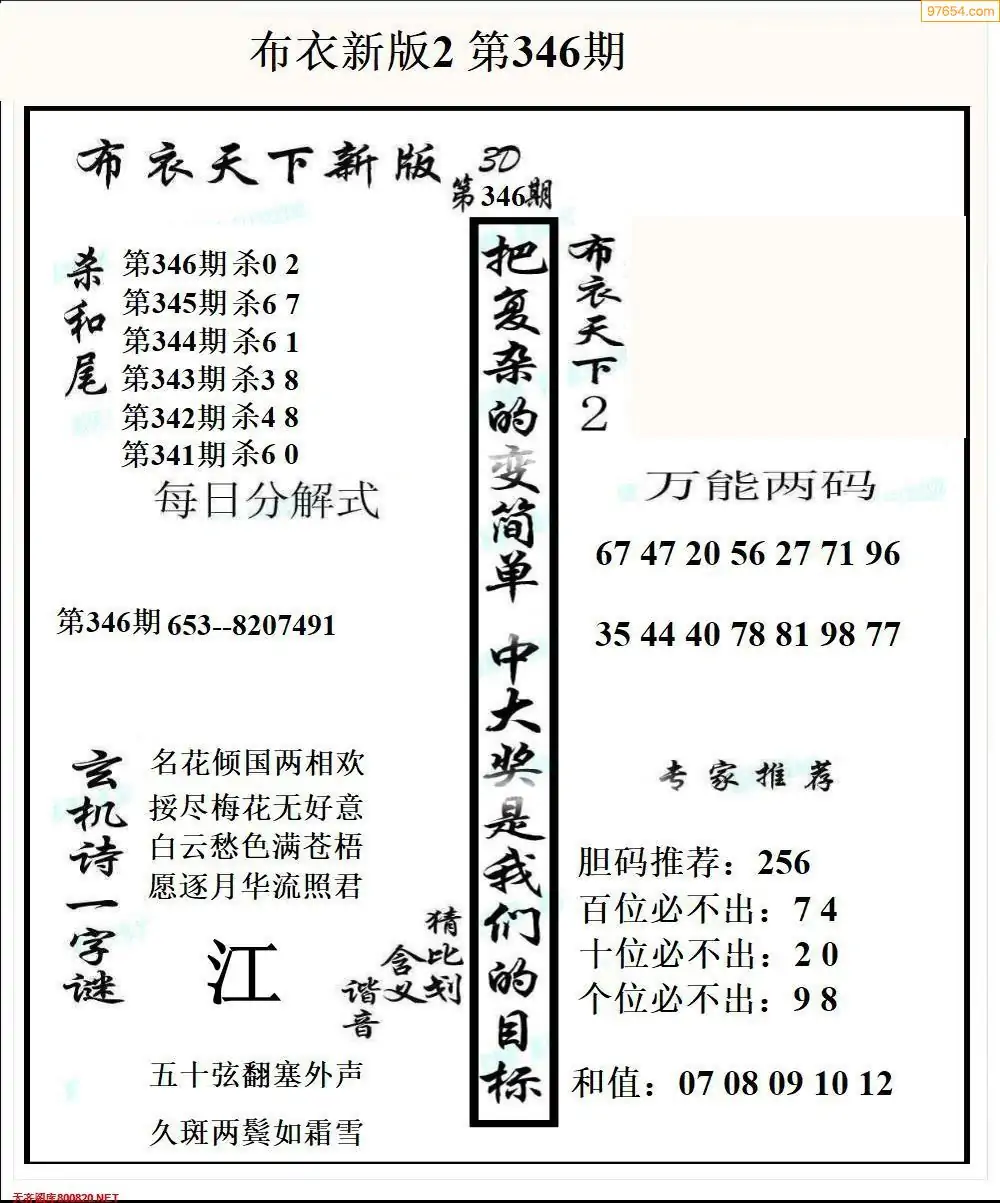 97654.com
布衣新版2 第346期
布衣天下新版 3D
第346期
杀和尾
第346期 杀0 2
第345期 杀6 7
第344期 杀6 1
第343期 杀3 8
第342期 杀4 8
第341期 杀6 0
每日分解式
第346期 653--8207491
玄机诗一字谜
名花倾国两相欢
挼尽梅花无好意
白云愁色满苍梧
愿逐月华流照君
江
猜比划
含义
谐音
五十弦翻塞外声
久斑两鬓如霜雪
把复杂的变简单 中大奖是我们的目标
布衣天下2
万能两码
67 47 20 56 27 71 96
35 44 40 78 81 98 77
专家推荐
胆码推荐：256
百位必不出：7 4
十位必不出：2 0
个位必不出：9 8
和值：07 08 09 10 12
天齐图库800820.NET